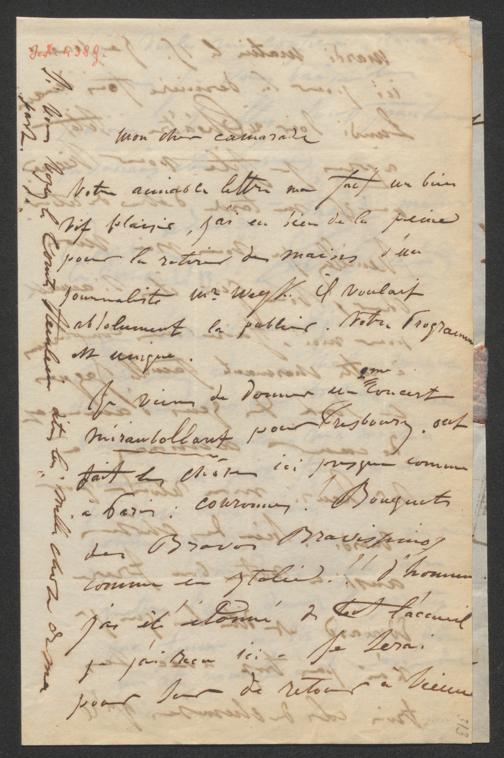 mon cher camarade
Votre aimable lettre m'a fait un bien
vif plaisir, j'ai eu bien de la peine
pour la retirer des mains d'un
journaliste Mr il voulait
absolument la publier. Votre Programme
est unique.
Je viens de donner un Concert
mirambollant pour Presbourg. ont
fait les choses ici presque comme
a Paris: couronnes! Bouquets
des Bravos Bravissimos
comme en Italie!!! d'honneur
j'ai été étonné de l'accueil
que j'ai reçu ici - Je serai
pour de retour a Vienne
Si vous voyez le Comte dites lui mille choses de ma
part.